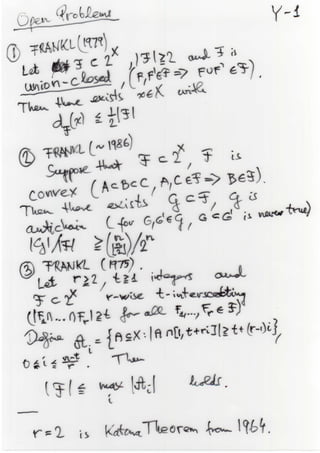 Open Problems Y-1
① FRANKL (1979)
Let F ⊂ 2^X, |F| ≧ 2 and F is
union-closed, (F,F'∈F => F∪F'∈F).
Then there exists x∈X with
d_F(x) ≦ ½|F|
② FRANKL (~1986)
Suppose that F ⊂ 2^X, F is
convex (A⊂B⊂C, A,C∈F => B∈F).
Then there exists G⊂F, G is
antichain (for G,G'∈G, G⊂G' is never true)
|G|/|F| ≧ (n [n/2])/2^n
③ FRANKL (1975).
Let r≧2, t≧1 integers and
F⊂2^X r-wise t-intersecting
(|F₁∩...∩Fᵣ|≧t for all F₁,...,Fᵣ∈F)
Define Aᵢ = {A⊆X: |A∩[1,t+ri]|≧t+(r-1)i},
0≦i≦(n-t)/r. Then
|F| ≦ max_i |Aᵢ| holds.
r=2 is Katona Theorem from 1964.